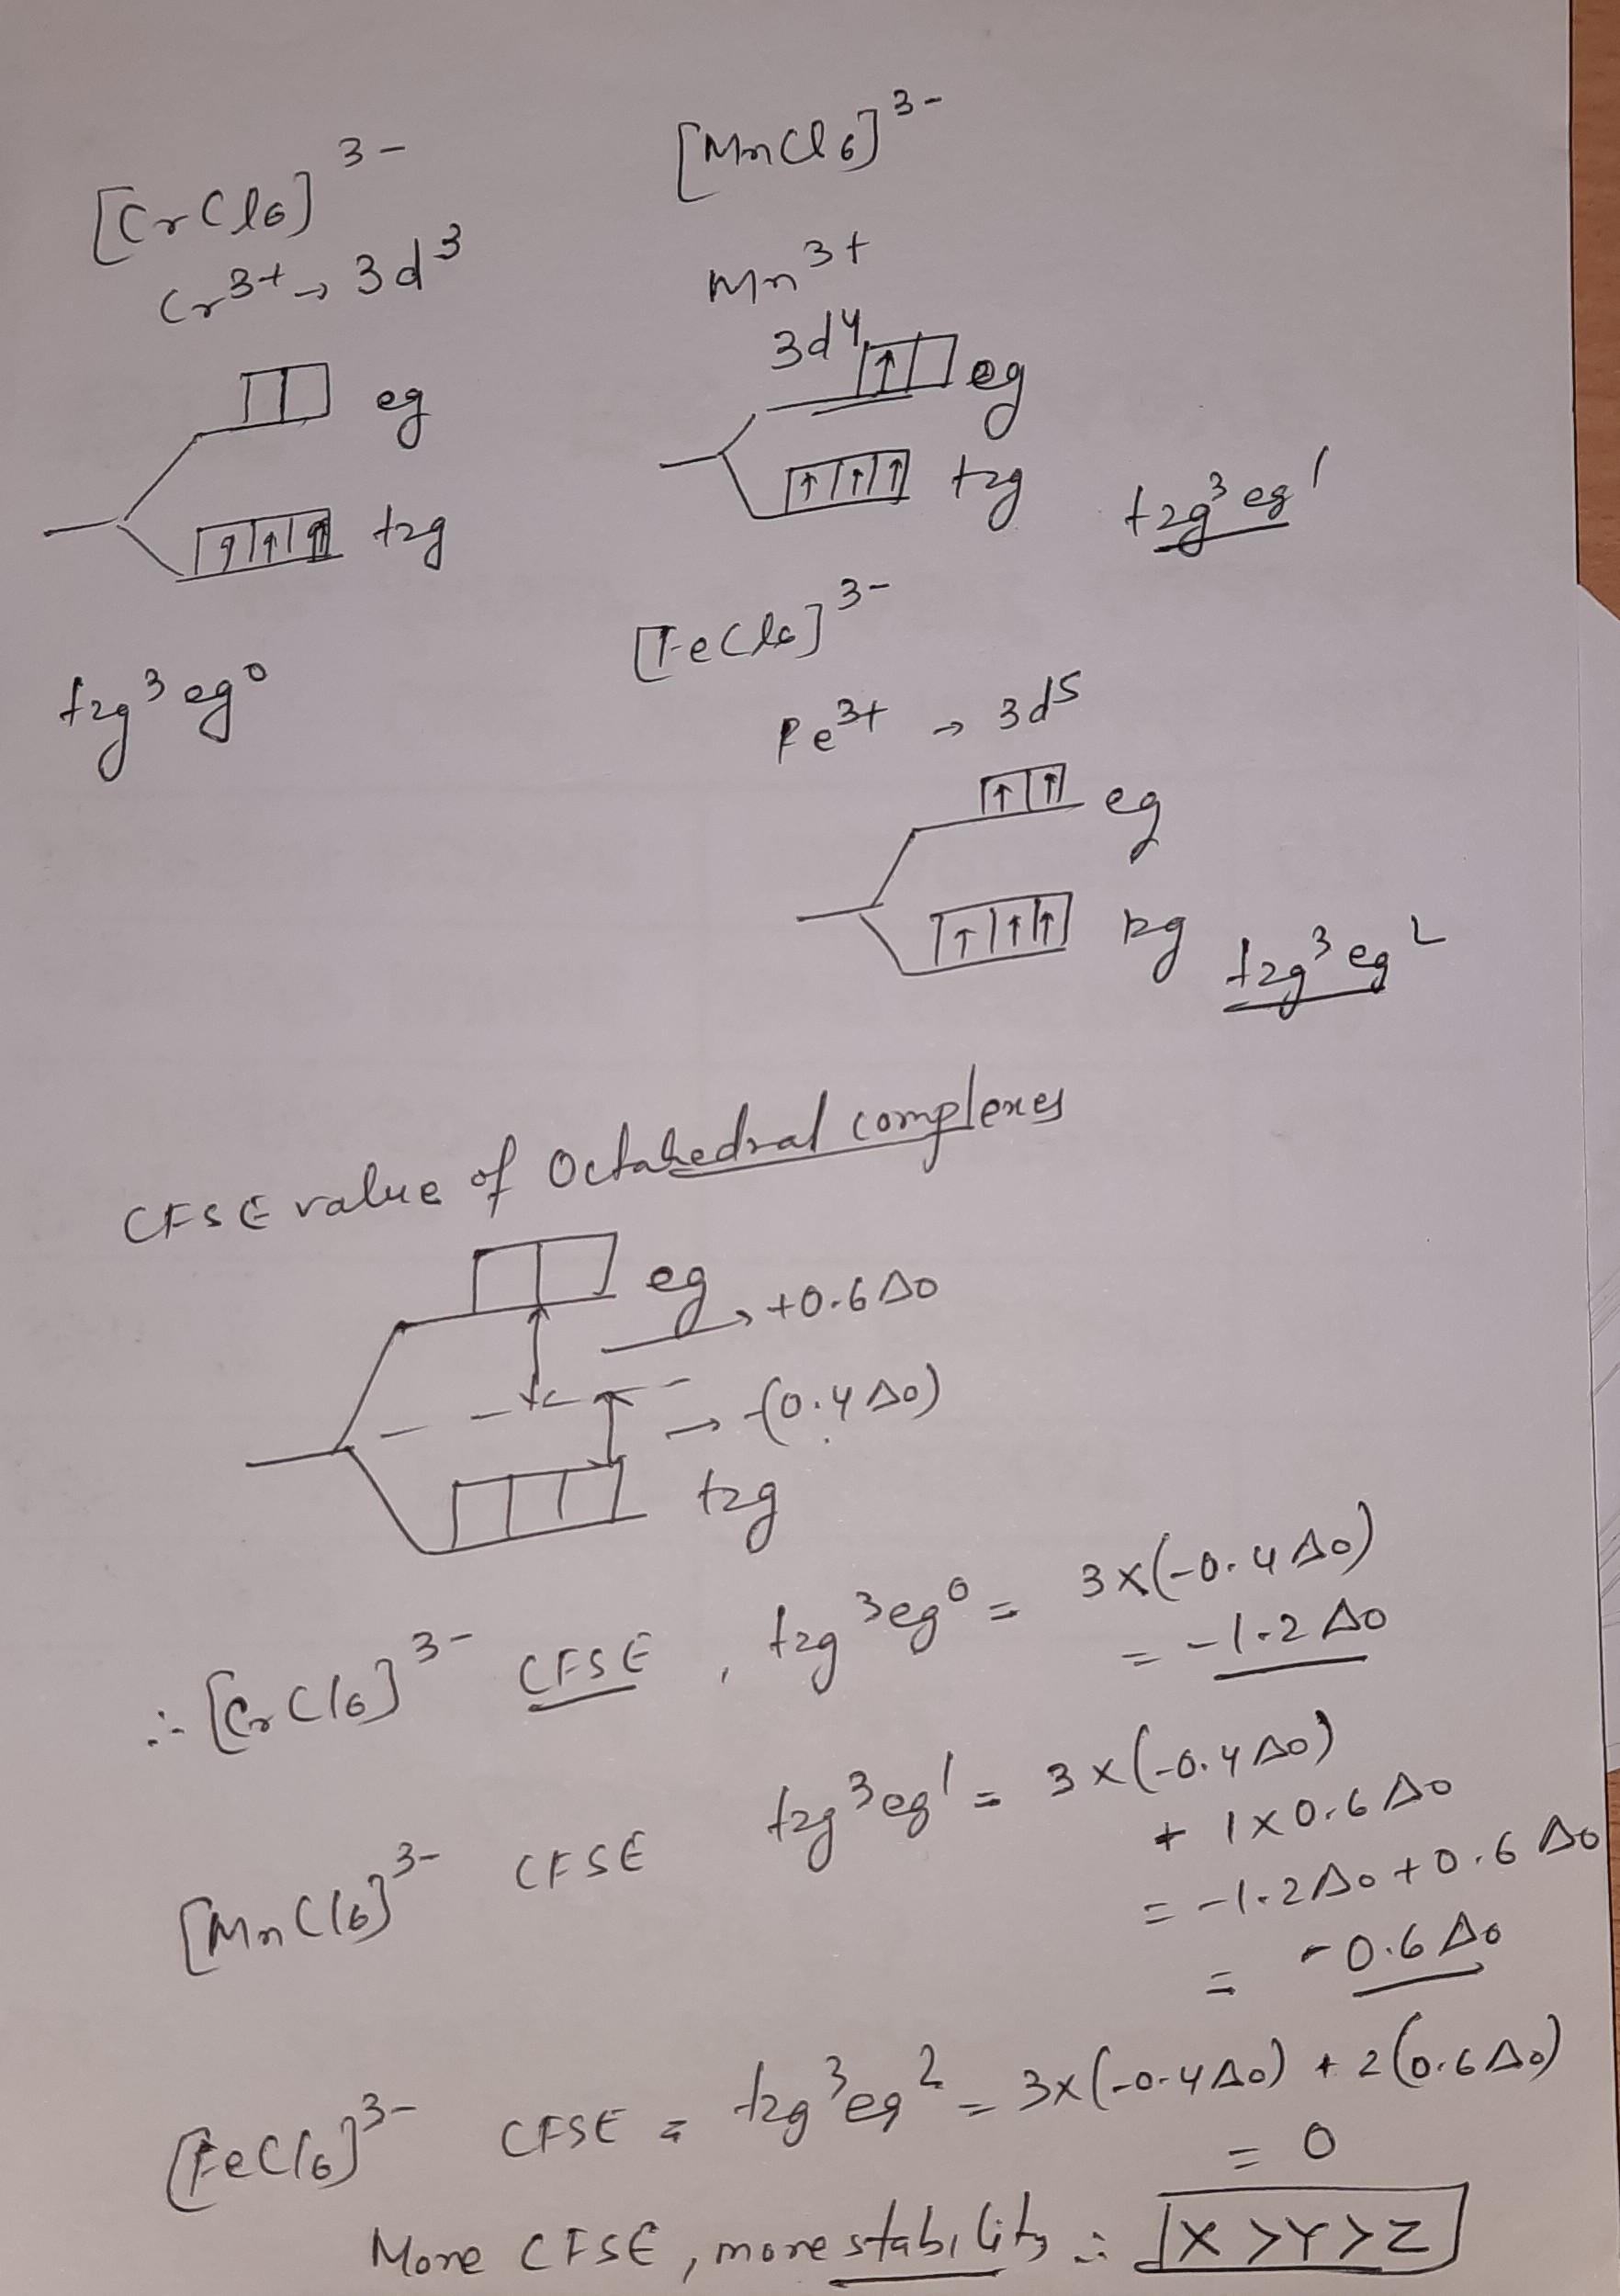 [CrCl6]3-
Cr3+ → 3d3
eg
t2g
t2g3 eg0
[MnCl6]3-
Mn3+
3d4
eg
t2g
t2g3 eg1
[FeCl6]3-
Fe3+ → 3d5
eg
t2g
t2g3 eg2
CFSE value of Octahedral complexes
eg → +0.6 Δo
→ -(0.4 Δo)
t2g
∴ [CrCl6]3- CFSE, t2g3 eg0 = 3×(-0.4 Δo)
= -1.2 Δo
[MnCl6]3- CFSE t2g3 eg1 = 3×(-0.4 Δo)
+ 1×0.6 Δo
= -1.2 Δo + 0.6 Δo
= -0.6 Δo
[FeCl6]3- CFSE = t2g3 eg2 = 3×(-0.4 Δo) + 2(0.6 Δo)
= 0
More CFSE, more stability ∴ X > Y > Z